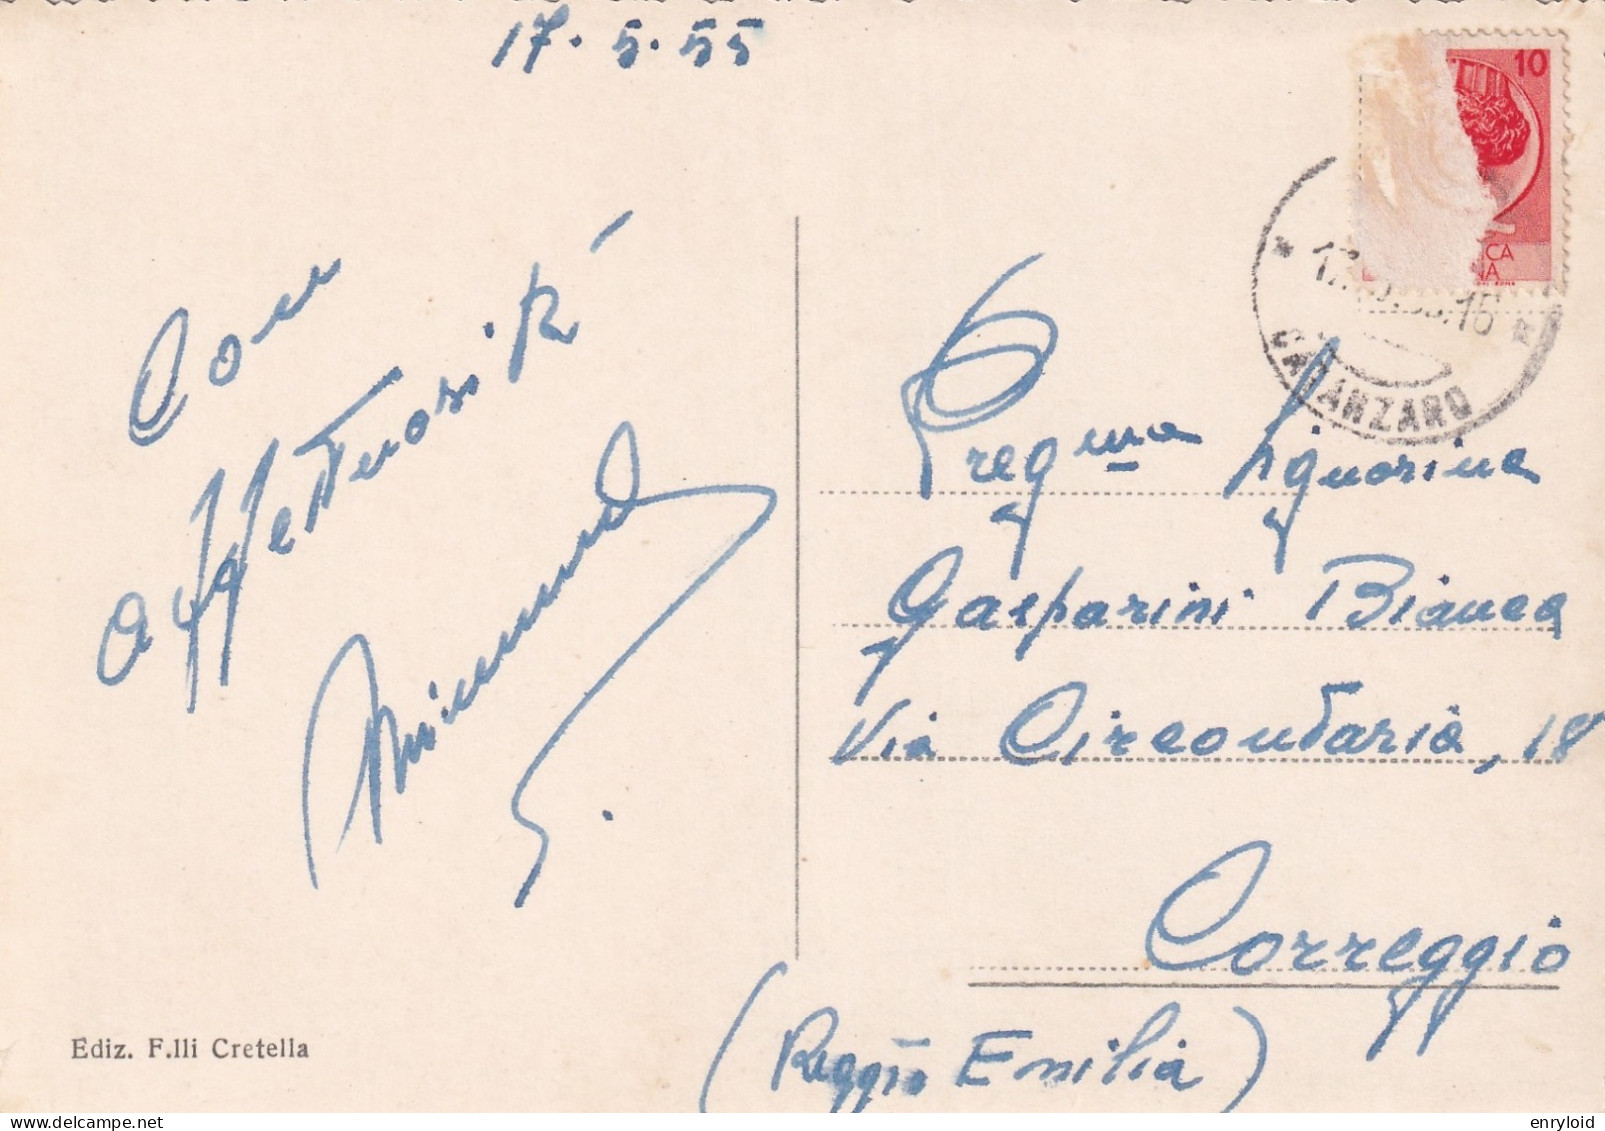 17.5.55
10
CA
NA
17. .16
CATANZARO
Con
affettuosità
Preg.ma Signorina
Gasparini Bianca
Via Circondaria, 18
Correggio
(Reggio Emilia)
Ediz. F.lli Cretella
enryloid
delcampe.net